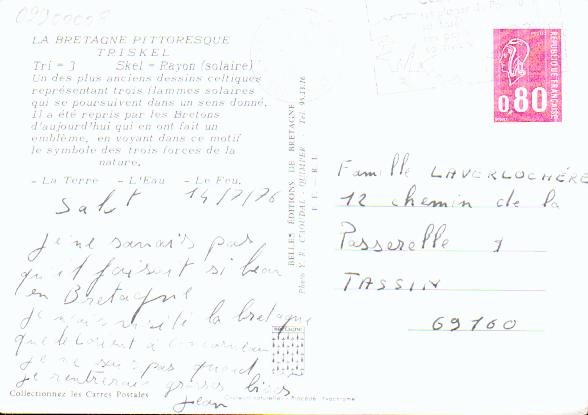 02900098
LA BRETAGNE PITTORESQUE
TRISKEL
Tri = 3 Skel = Rayon (solaire)
Un des plus anciens dessins celtiques
représentant trois flammes solaires
qui se poursuivent dans un sens donné.
Il a été repris par les Bretons
d'aujourd'hui qui en ont fait un
emblème, en voyant dans ce motif
le symbole des trois forces de la
nature.
- La Terre - L'Eau - Le Feu.
Salut 14/7/76
Je ne savais pas
qu'il faisait si beau
en Bretagne
visité la bretagne
que le
je ne sais pas quand
je rentrerais grosses bises
Jean
Collectionnez les Cartes Postales
BELLES ÉDITIONS DE BRETAGNE
QUIMPER - Tel. 95.33.76
BRETAGNE
RÉPUBLIQUE FRANÇAISE
0,80
Famille LAVERLOCHÉRE
12 chemin de la
Passerelle
TASSIN
69160